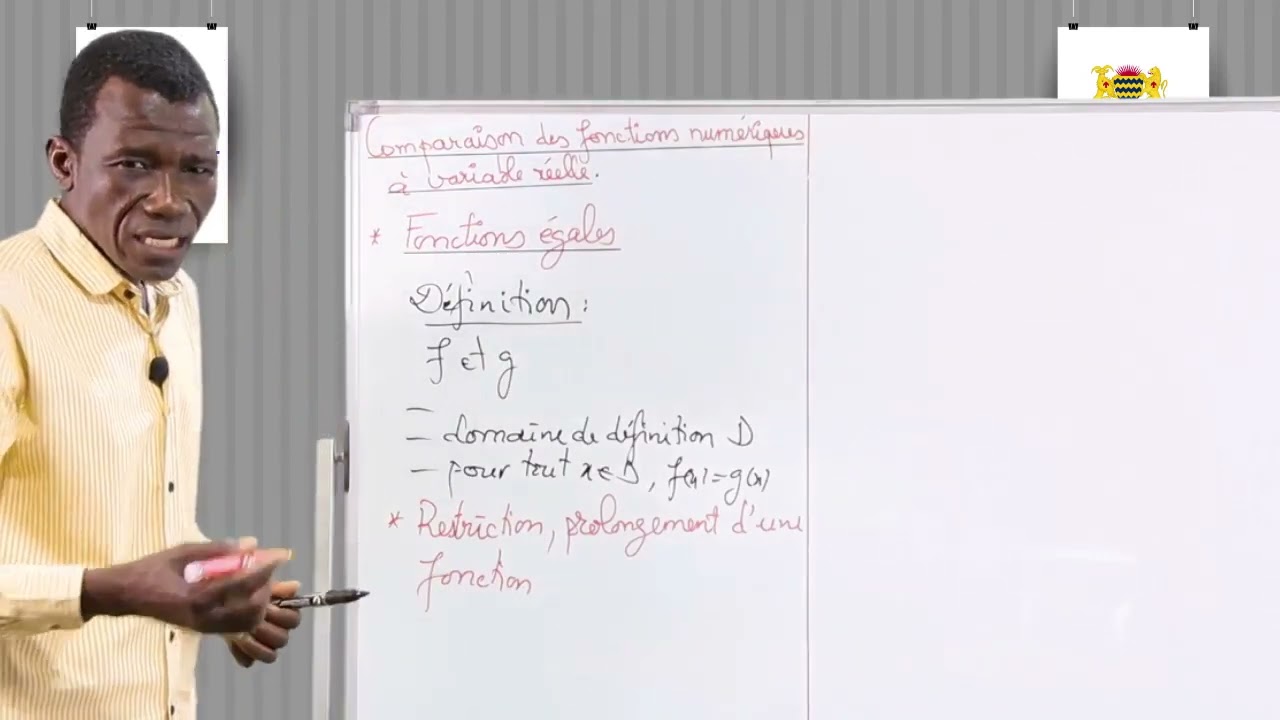 Comparaison des fonctions numériques
à variable réelle.
* Fonctions égales
Définition :
f et g
– domaine de définition D
– pour tout x ∈ D, f(x) = g(x)
* Restriction, prolongement d'une
fonction